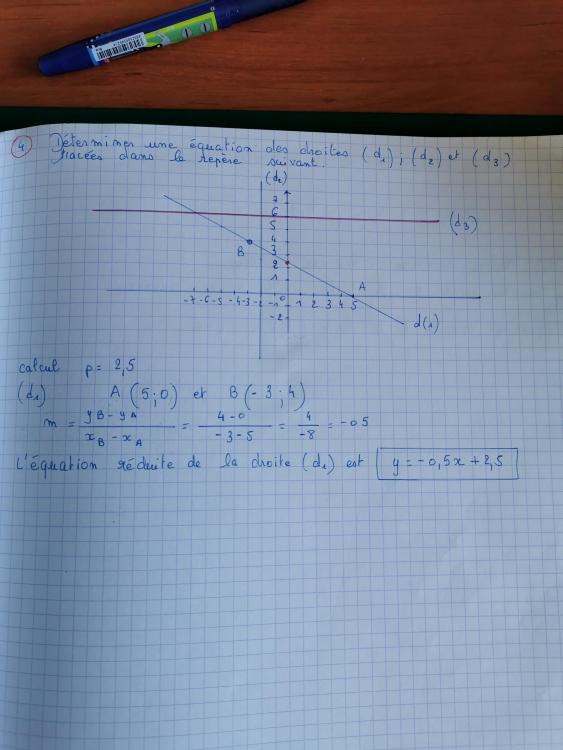 4 Déterminer une équation des droites (d1) ; (d2) et (d3)
tracées dans le repère suivant.
(d2)
7
6
5
4
3
2
1
(d3)
B
A
-7 -6 -5 -4 -3 -2 -1 0 1 2 3 4 5
-2
d(1)
calcul p = 2,5
(d1) A (5 ; 0) et B (-3 ; 4)
m = yB - yA / xB - xA = 4 - 0 / -3 - 5 = 4 / -8 = -05
L'équation réduite de la droite (d1) est y = -0,5x + 2,5